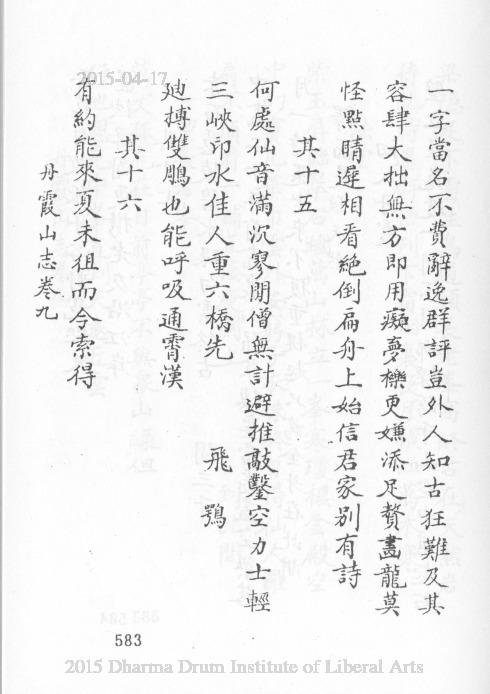 2015-04-17
一字當名不費辭逸群評豈外人知古狂難及其
容肆大拙無方即用癡夢櫟更嫌添足贅畫龍莫
怪點睛遲相看絕倒扁舟上始信君家別有詩
其十五
何處仙音滿沉寥閒僧無計避推敲鑿空力士輕
三峽印水佳人重六橋先 飛鶚
廸搏雙鵰也能呼吸通霄漢
其十六
有約能來夏未徂而今索得
丹霞山志卷九
583
2015 Dharma Drum Institute of Liberal Arts